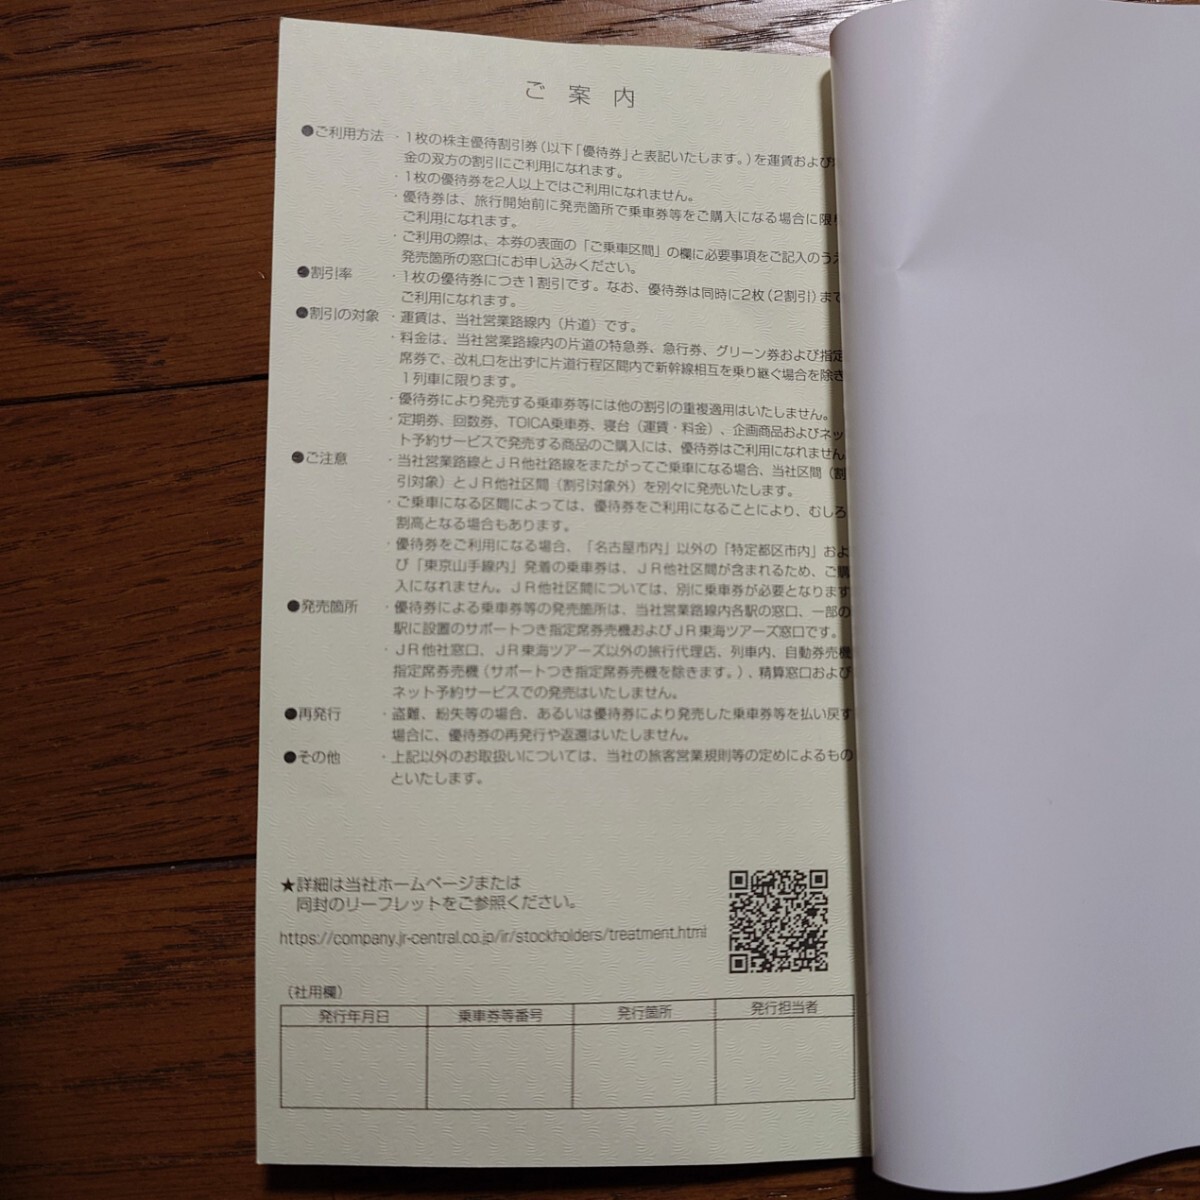 ご案内
●ご利用方法 ・1枚の株主優待割引券(以下「優待券」と表記いたします。)を運賃および
金の双方の割引にご利用になれます。
・1枚の優待券を2人以上ではご利用になれません。
・優待券は、旅行開始前に発売箇所で乗車券等をご購入になる場合に限り
ご利用になれます。
・ご利用の際は、本券の表面の「ご乗車区間」の欄に必要事項をご記入のうえ
発売箇所の窓口にお申し込みください。
●割引率 ・1枚の優待券につき1割引です。なお、優待券は同時に2枚(2割引)まで
ご利用になれます。
●割引の対象 ・運賃は、当社営業路線内(片道)です。
・料金は、当社営業路線内の片道の特急券、急行券、グリーン券および指定
席券で、改札口を出ずに片道行程区間内で新幹線相互を乗り継ぐ場合を除き
1列車に限ります。
・優待券により発売する乗車券等には他の割引の重複適用はいたしません。
・定期券、回数券、TOICA乗車券、寝台(運賃・料金)、企画商品およびネッ
ト予約サービスで発売する商品のご購入には、優待券はご利用になれません
●ご注意 ・当社営業路線とJR他社路線をまたがってご乗車になる場合、当社区間(割
引対象)とJR他社区間(割引対象外)を別々に発売いたします。
・ご乗車になる区間によっては、優待券をご利用になることにより、むしろ
割高となる場合もあります。
・優待券をご利用になる場合、「名古屋市内」以外の「特定都区市内」およ
び「東京山手線内」発着の乗車券は、JR他社区間が含まれるため、ご購
入になれません。JR他社区間については、別に乗車券が必要となります
●発売箇所 ・優待券による乗車券等の発売箇所は、当社営業路線内各駅の窓口、一部の
駅に設置のサポートつき指定席券売機およびJR東海ツアーズ窓口です。
・JR他社窓口、JR東海ツアーズ以外の旅行代理店、列車内、自動券売機
指定席券売機(サポートつき指定席券売機を除きます。)、精算窓口および
ネット予約サービスでの発売はいたしません。
●再発行 ・盗難、紛失等の場合、あるいは優待券により発売した乗車券等を払い戻す
場合に、優待券の再発行や返還はいたしません。
●その他 ・上記以外のお取扱いについては、当社の旅客営業規則等の定めによるもの
といたします。
★詳細は当社ホームページまたは
同封のリーフレットをご参照ください。
https://company.jr-central.co.jp/ir/stockholders/treatment.html
(社用欄)
発行年月日 乗車券等番号 発行箇所 発行担当者